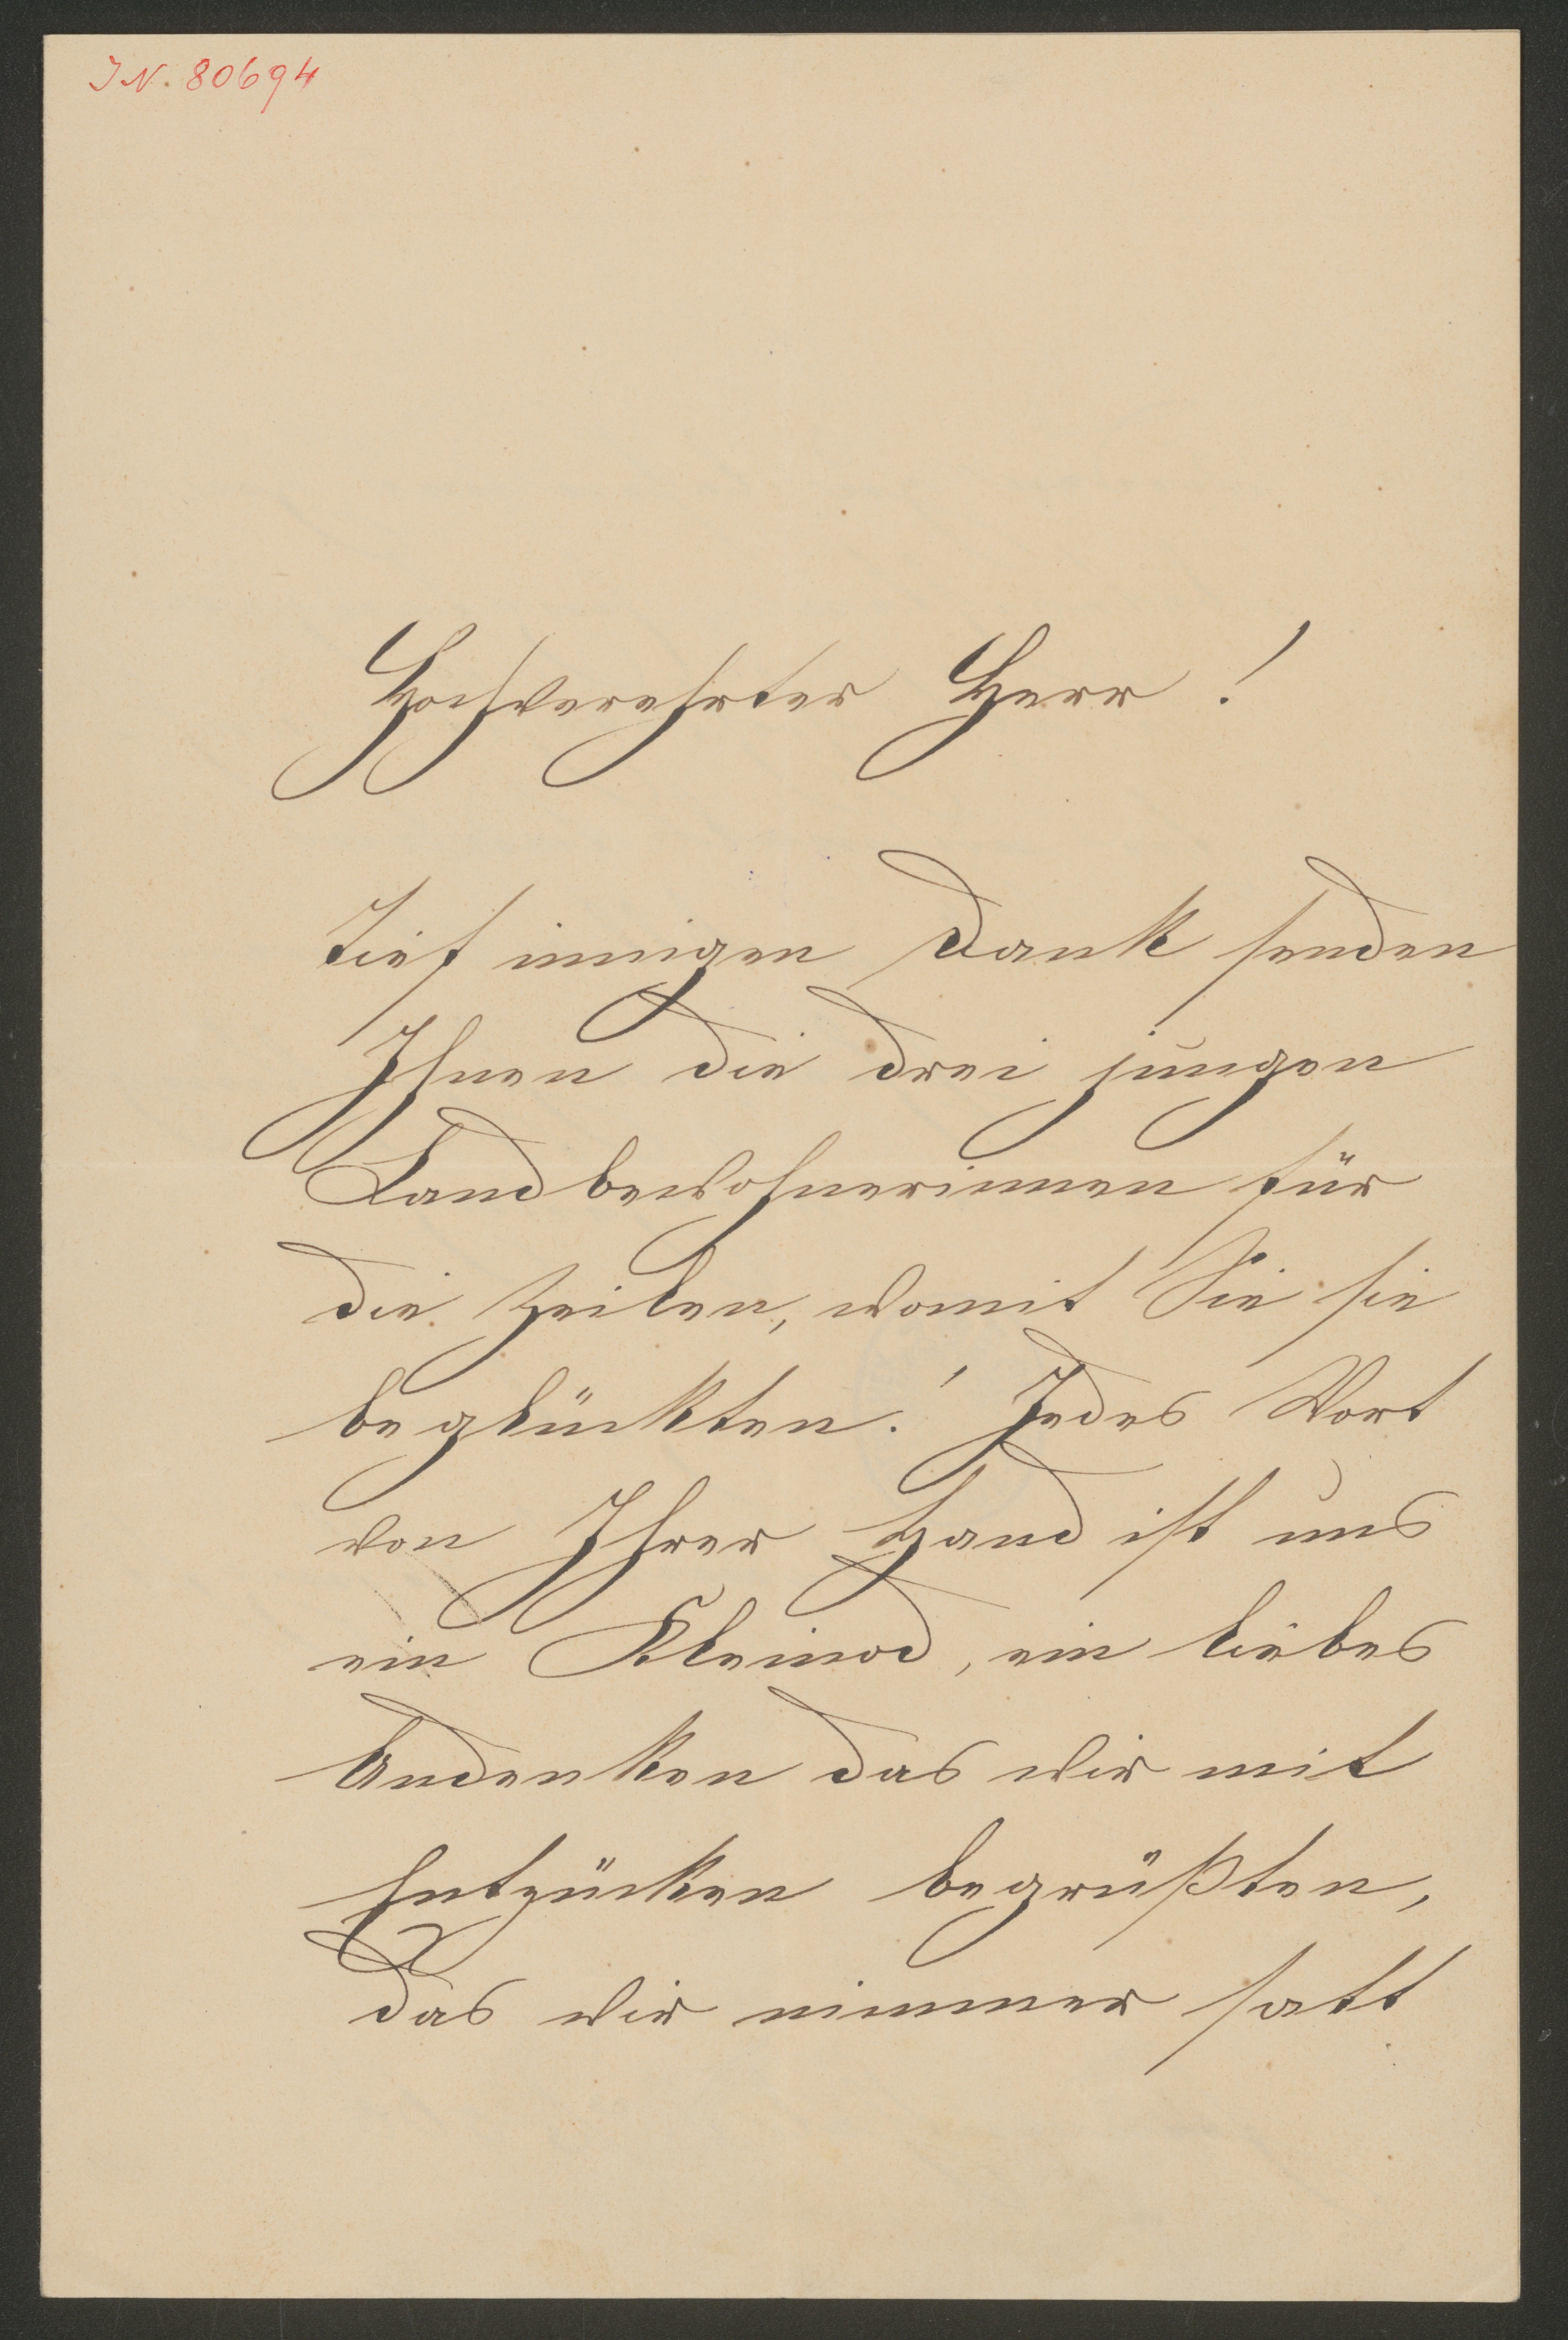 IN. 80694
Hochverehrter Herr!
Tief innigen Dank senden
Ihnen die drei jungen
Landbewohnerinnen für
die Zeilen, womit Sie sie
beglückten! Jedes Wort
von Ihrer Hand ist uns
ein Kleinod, ein liebes
Andenken das wir mit
Entzücken begrüßten,
das wir nimmer satt